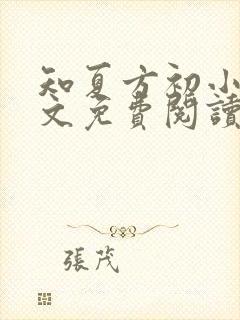 知夏方初小
文免費閱讀
張茂